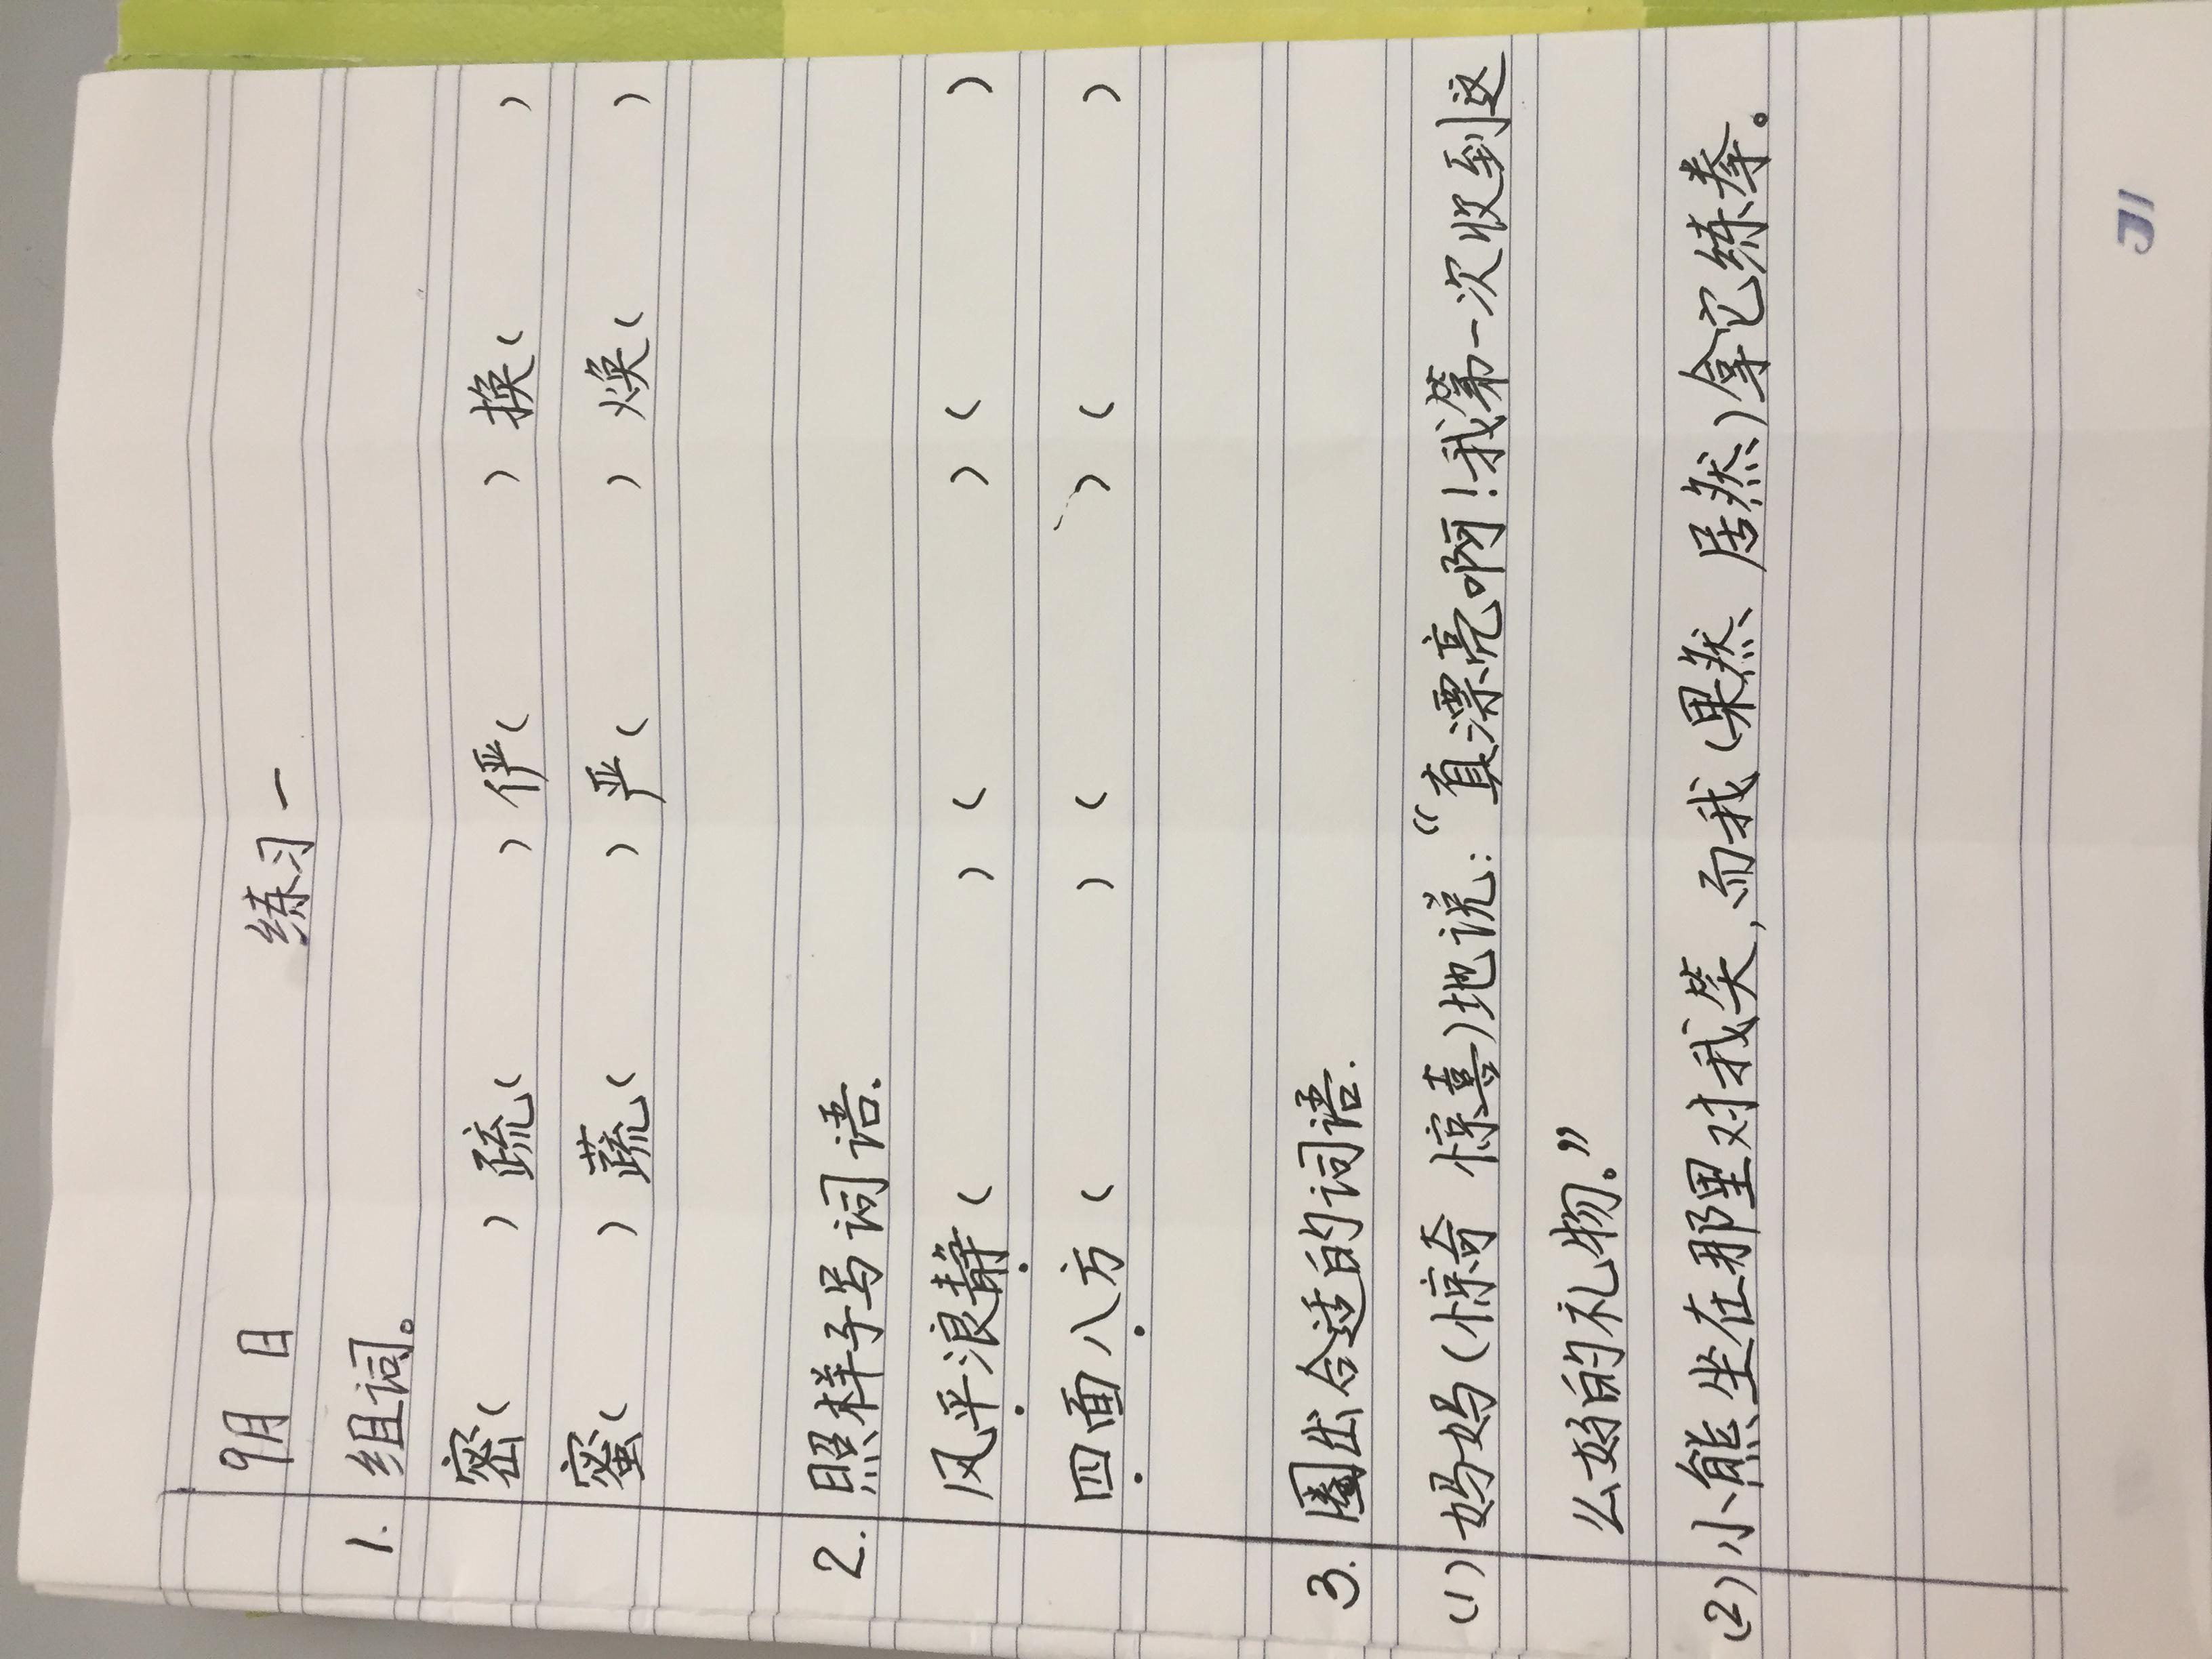 9月 日
练习一
1. 组词。
密( ) 疏( ) 俨( ) 换( )
蜜( ) 蔬( ) 严( ) 焕( )
2. 照样子写词语.
风平浪静( ) ( ) ( )
四面八方( ) ( ) ( )
3. 圈出合适的词语.
(1) 妈妈(惊奇 惊喜)地说:“真漂亮啊!我第一次收到这
么好的礼物。”
(2) 小熊坐在那里对我笑,而我(果然、居然)拿它练拳。